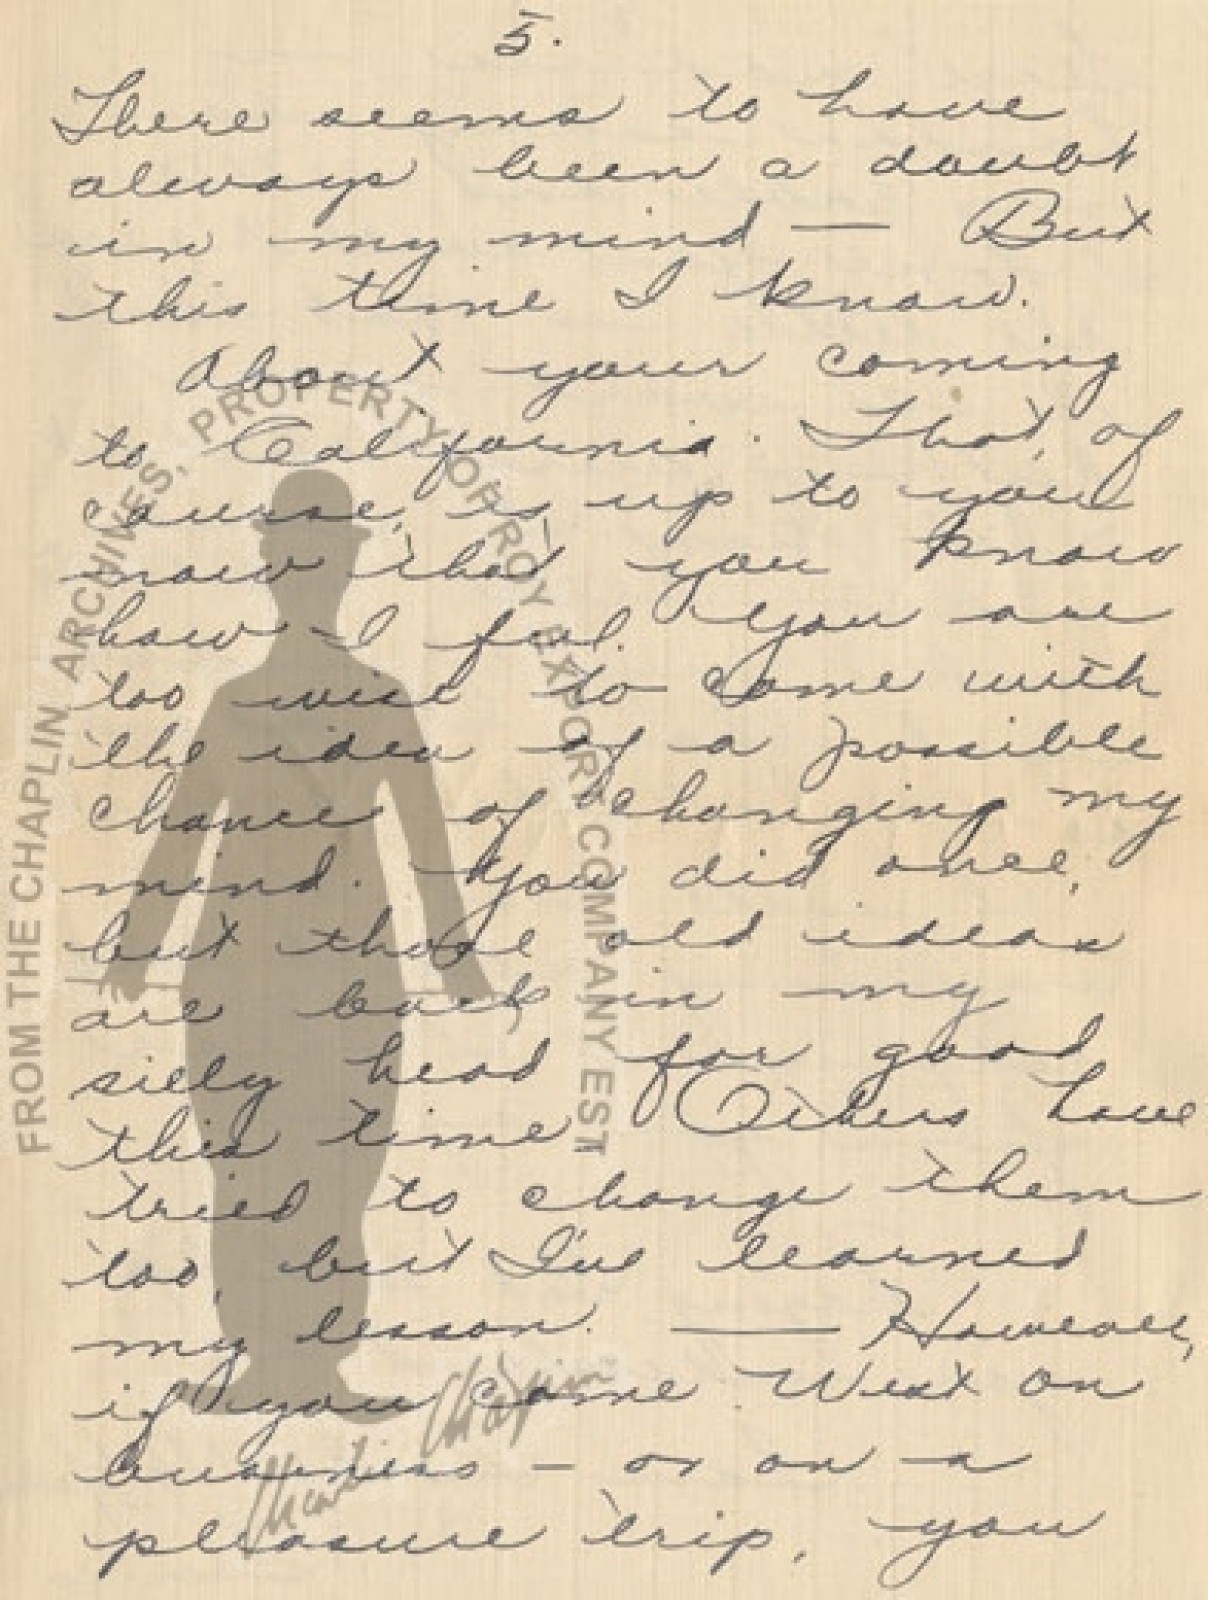 5.
There seems to have
always been a doubt
in my mind — But
this time I know.
About your coming
to California. That, of
course, is up to you
now that you know
how I feel. You are
too wise to come with
the idea of a possible
chance of changing my
mind. You did once,
but those old ideas
are back in my
silly head for good
this time. Others have
tried to change them
too, but I've learned
my lesson. — However,
if you come West on
business — or on a
pleasure trip, you
FROM THE CHAPLIN ARCHIVES. PROPERTY OF ROY EXPORT COMPANY EST
Charlie Chaplin